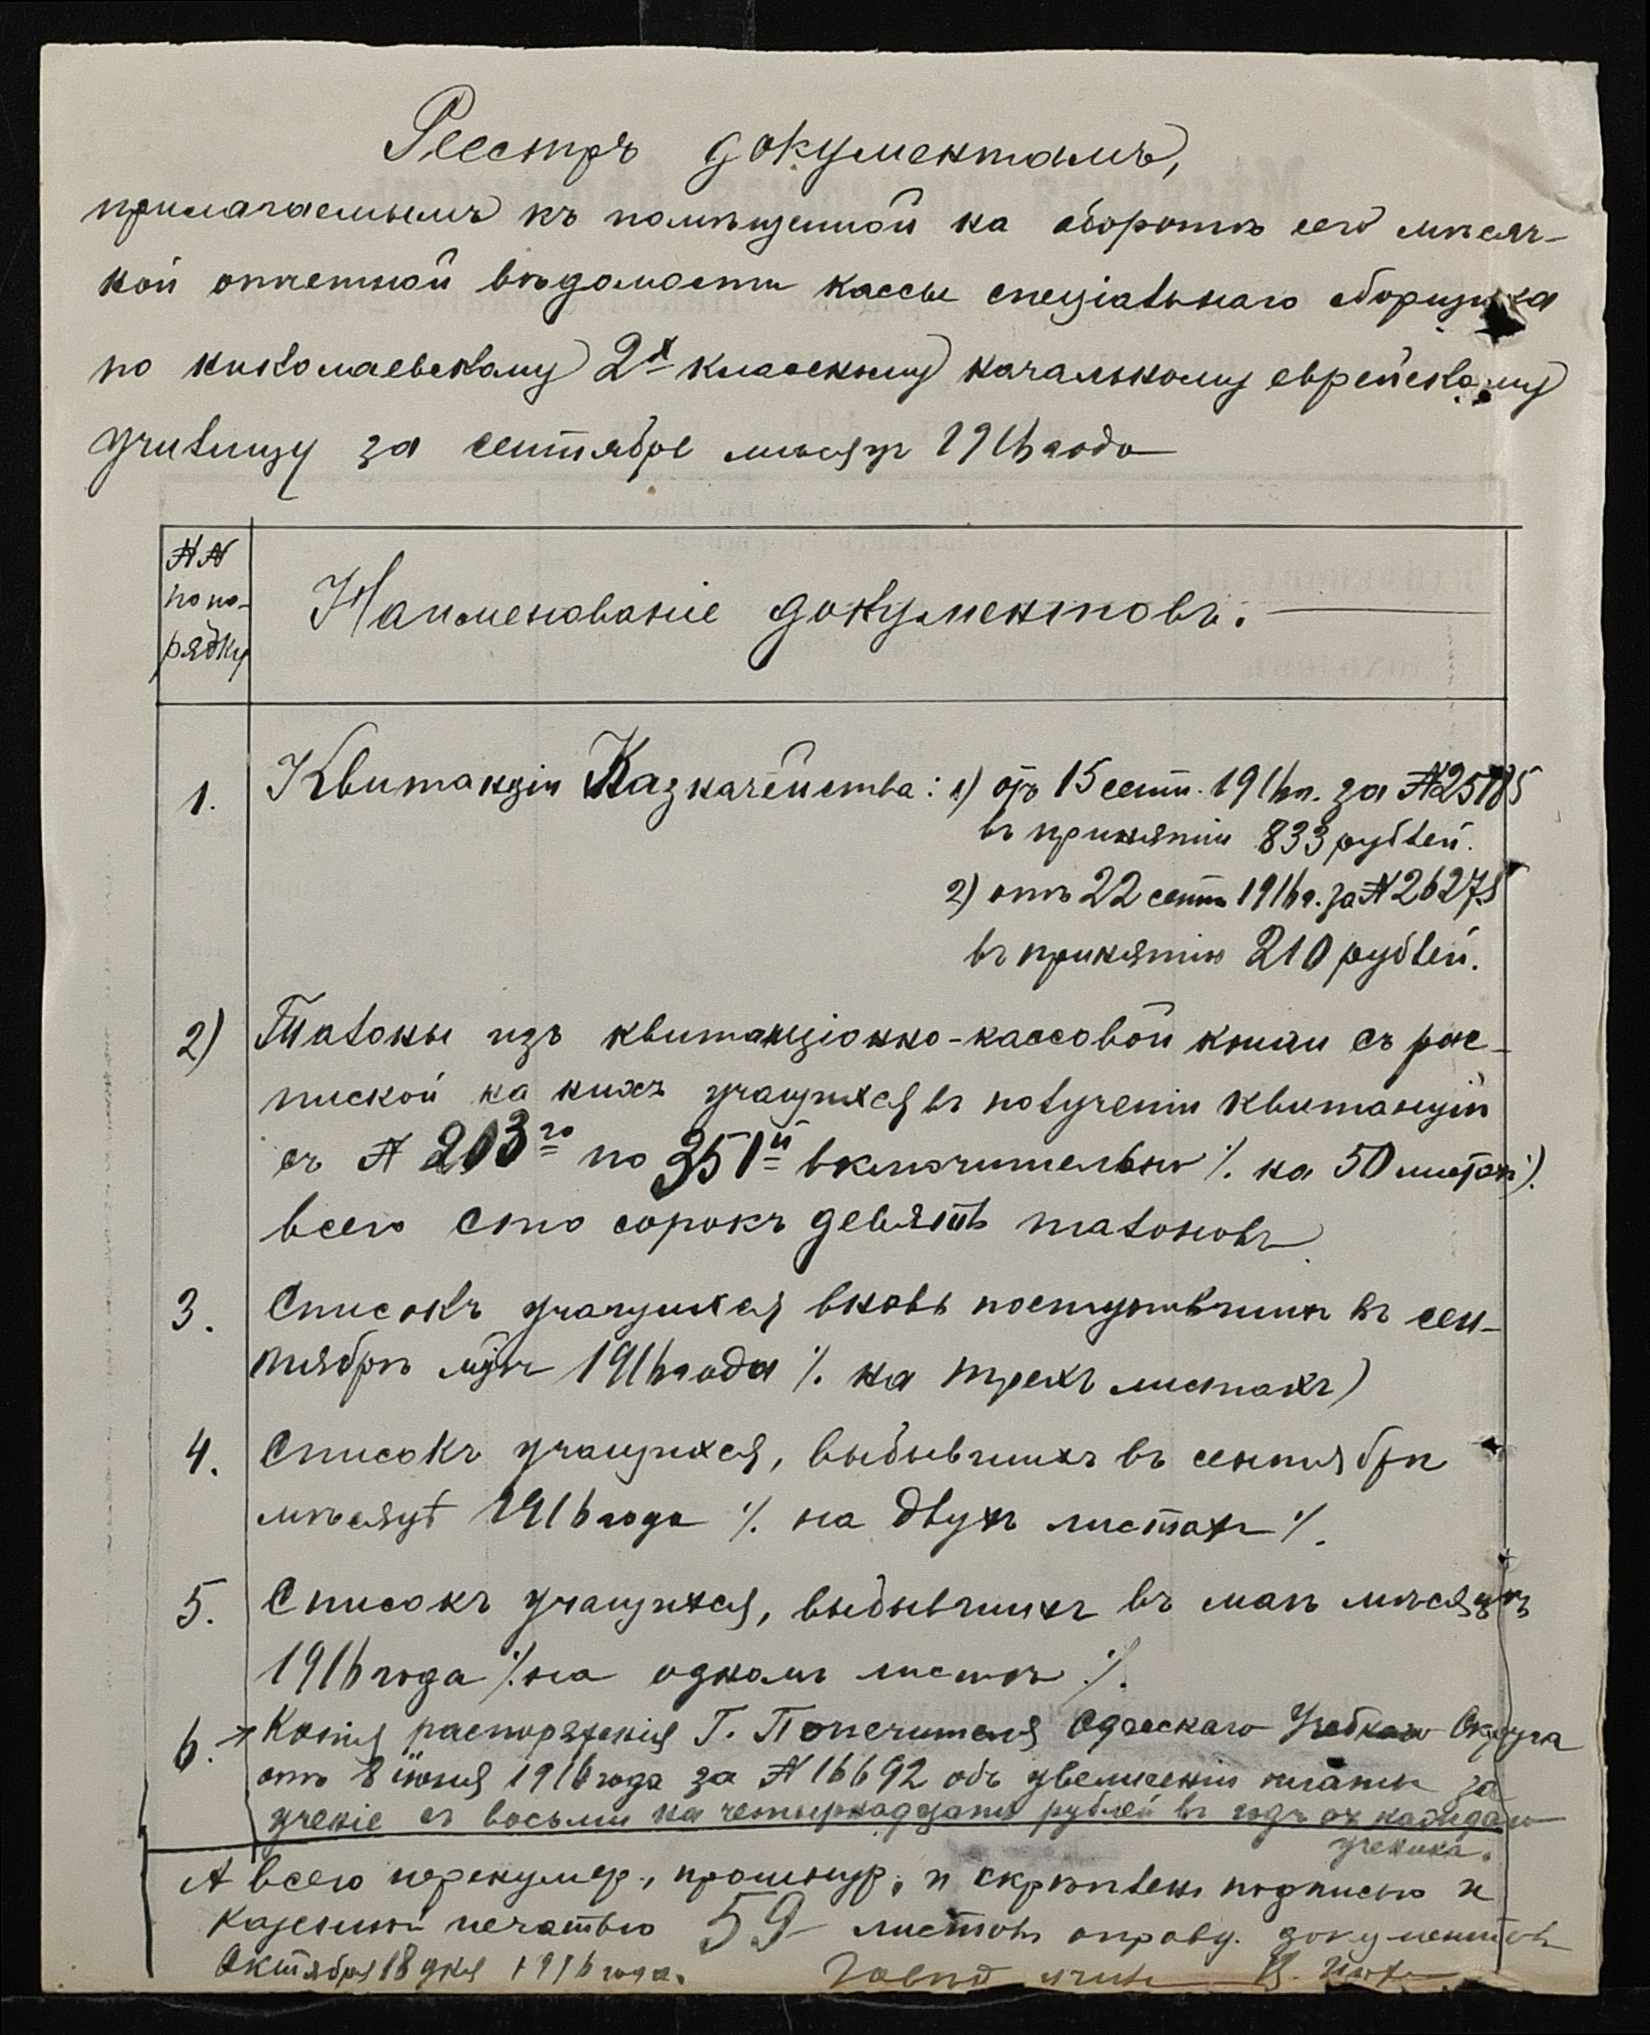 Реестръ документамъ,
прилагаемымъ къ помѣщенной на оборотѣ сего мѣсяч-
ной отчетной вѣдомости кассы спеціальнаго сборщика
по Николаевскому 2х классному начальному еврейскому
училищу за сентябрь мѣсяцъ 1916 года
№№
по по-
рядку
Наименованіе документовъ.
1. Квитанціи Казначейства: 1) отъ 15 сент. 1916 г. за №25785
въ принятіи 833 рублей.
2) отъ 22 сент 1916 г. за № 26275
въ принятіи 210 рублей.
2) Талоны изъ квитанціонно-кассовой книги съ рос-
пиской на нихъ учащихся въ полученіи квитанцій
съ № 203го по 351й включительно /. на 50 листахъ).
всего сто сорокъ девять талоновъ
3. Списокъ учащихся вновь поступившихъ въ сен-
тябрѣ мцѣ 1916 года /. на трехъ листахъ)
4. Списокъ учащихся, выбывшихъ въ сентябрѣ
мѣсяцѣ 1916 года /. на двухъ листахъ /.
5. Списокъ учащихся, выбывшихъ въ маѣ мѣсяцѣ
1916 года /. на одномъ листѣ /.
6. Копія распоряженія Г. Попечителя Одесскаго Учебнаго Округа
отъ 8 іюня 1916 года за № 16692 объ увеличеніи платы за
ученіе съ восьми на четырнадцать рублей въ годъ съ каждаго
ученика.
А всего перенумер., прошнур. и скрѣплено подписью и
казенной печатью 59 листовъ оправд. документовъ
Октября 18 дня 1916 года.